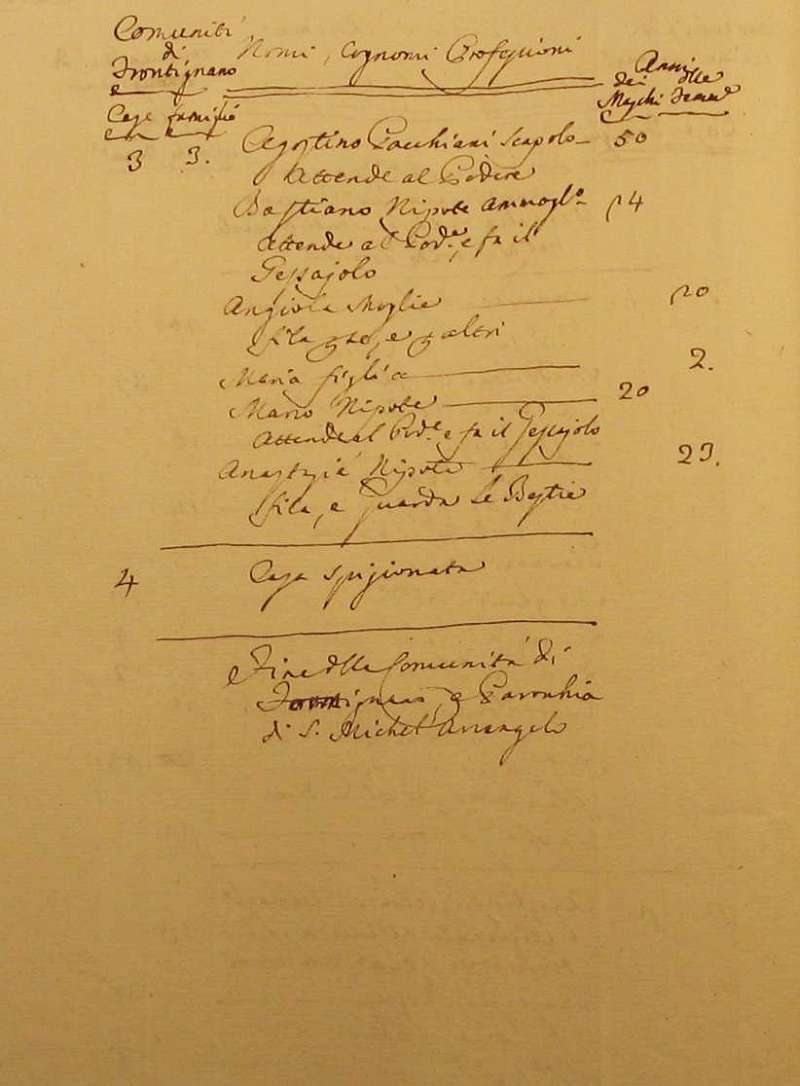 Comunità
di
Frontignano
Nomi, Cognomi Professioni
Anni
dei delle
Maschi Femme
Case famiglie
3 3. Agostino Pacchiani Scapolo 50
Attende al Podere
Bastiano Nipote Ammogl.o 24
Attende al Pod.e, e fa il
Gessajolo
Angiola Moglie 20
fila
Maria figlia 2.
Mario Nipote 20
Attende al Pod.e e fa il Gessajolo
Anastasia Nipote 23.
fila, e Guarda le Bestie
4 Casa spigionata
Fine delle Comunità di
Frontignano, e Parochia
di S. Michel'Arcangelo